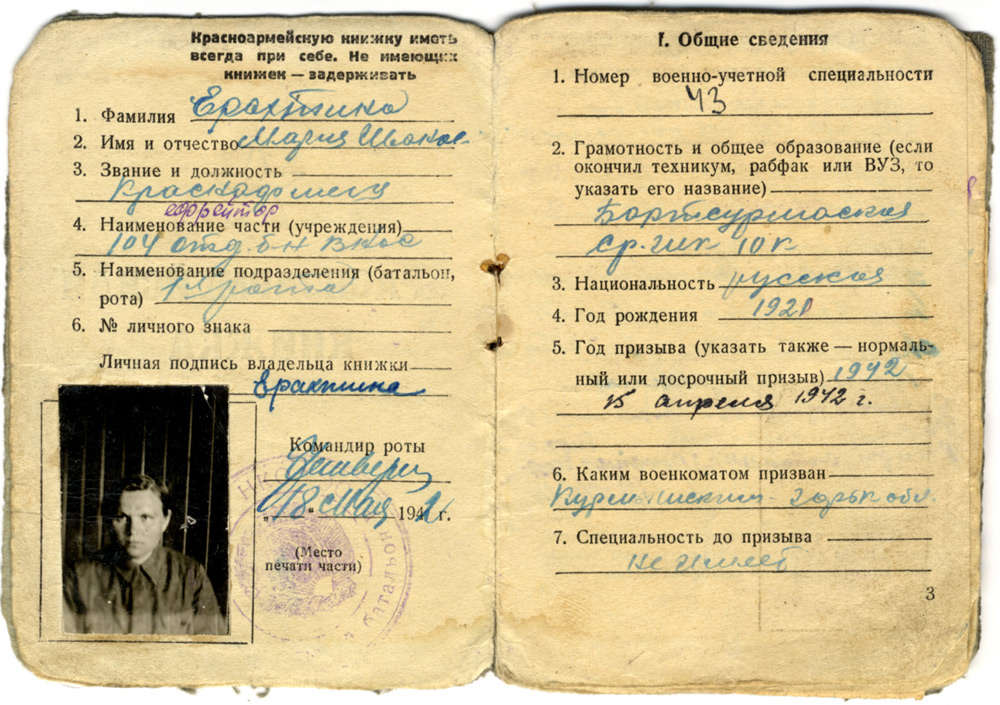 Красноармейскую книжку иметь
всегда при себе. Не имеющих
книжек — задерживать
1. Фамилия Ерахтина
2. Имя и отчество Мария
3. Звание и должность
Красноармеец
ефрейтор
4. Наименование части (учреждения)
104 отд. б-н ВНОС
5. Наименование подразделения (батальон,
рота) рота
6. № личного знака
Личная подпись владельца книжки
Ерахтина
Командир роты
„18“ мая 1942 г.
(Место
печати части)
батальон
I. Общие сведения
1. Номер военно-учетной специальности
43
2. Грамотность и общее образование (если
окончил техникум, рабфак или ВУЗ, то
указать его название)
Бортсурманская
ср. шк 10 к
3. Национальность русская
4. Год рождения
5. Год призыва (указать также — нормаль-
ный или досрочный призыв) 1942
15 апреля 1942 г.
6. Каким военкоматом призван
Курмышским Горьк обл.
7. Специальность до призыва
Не имеет
3